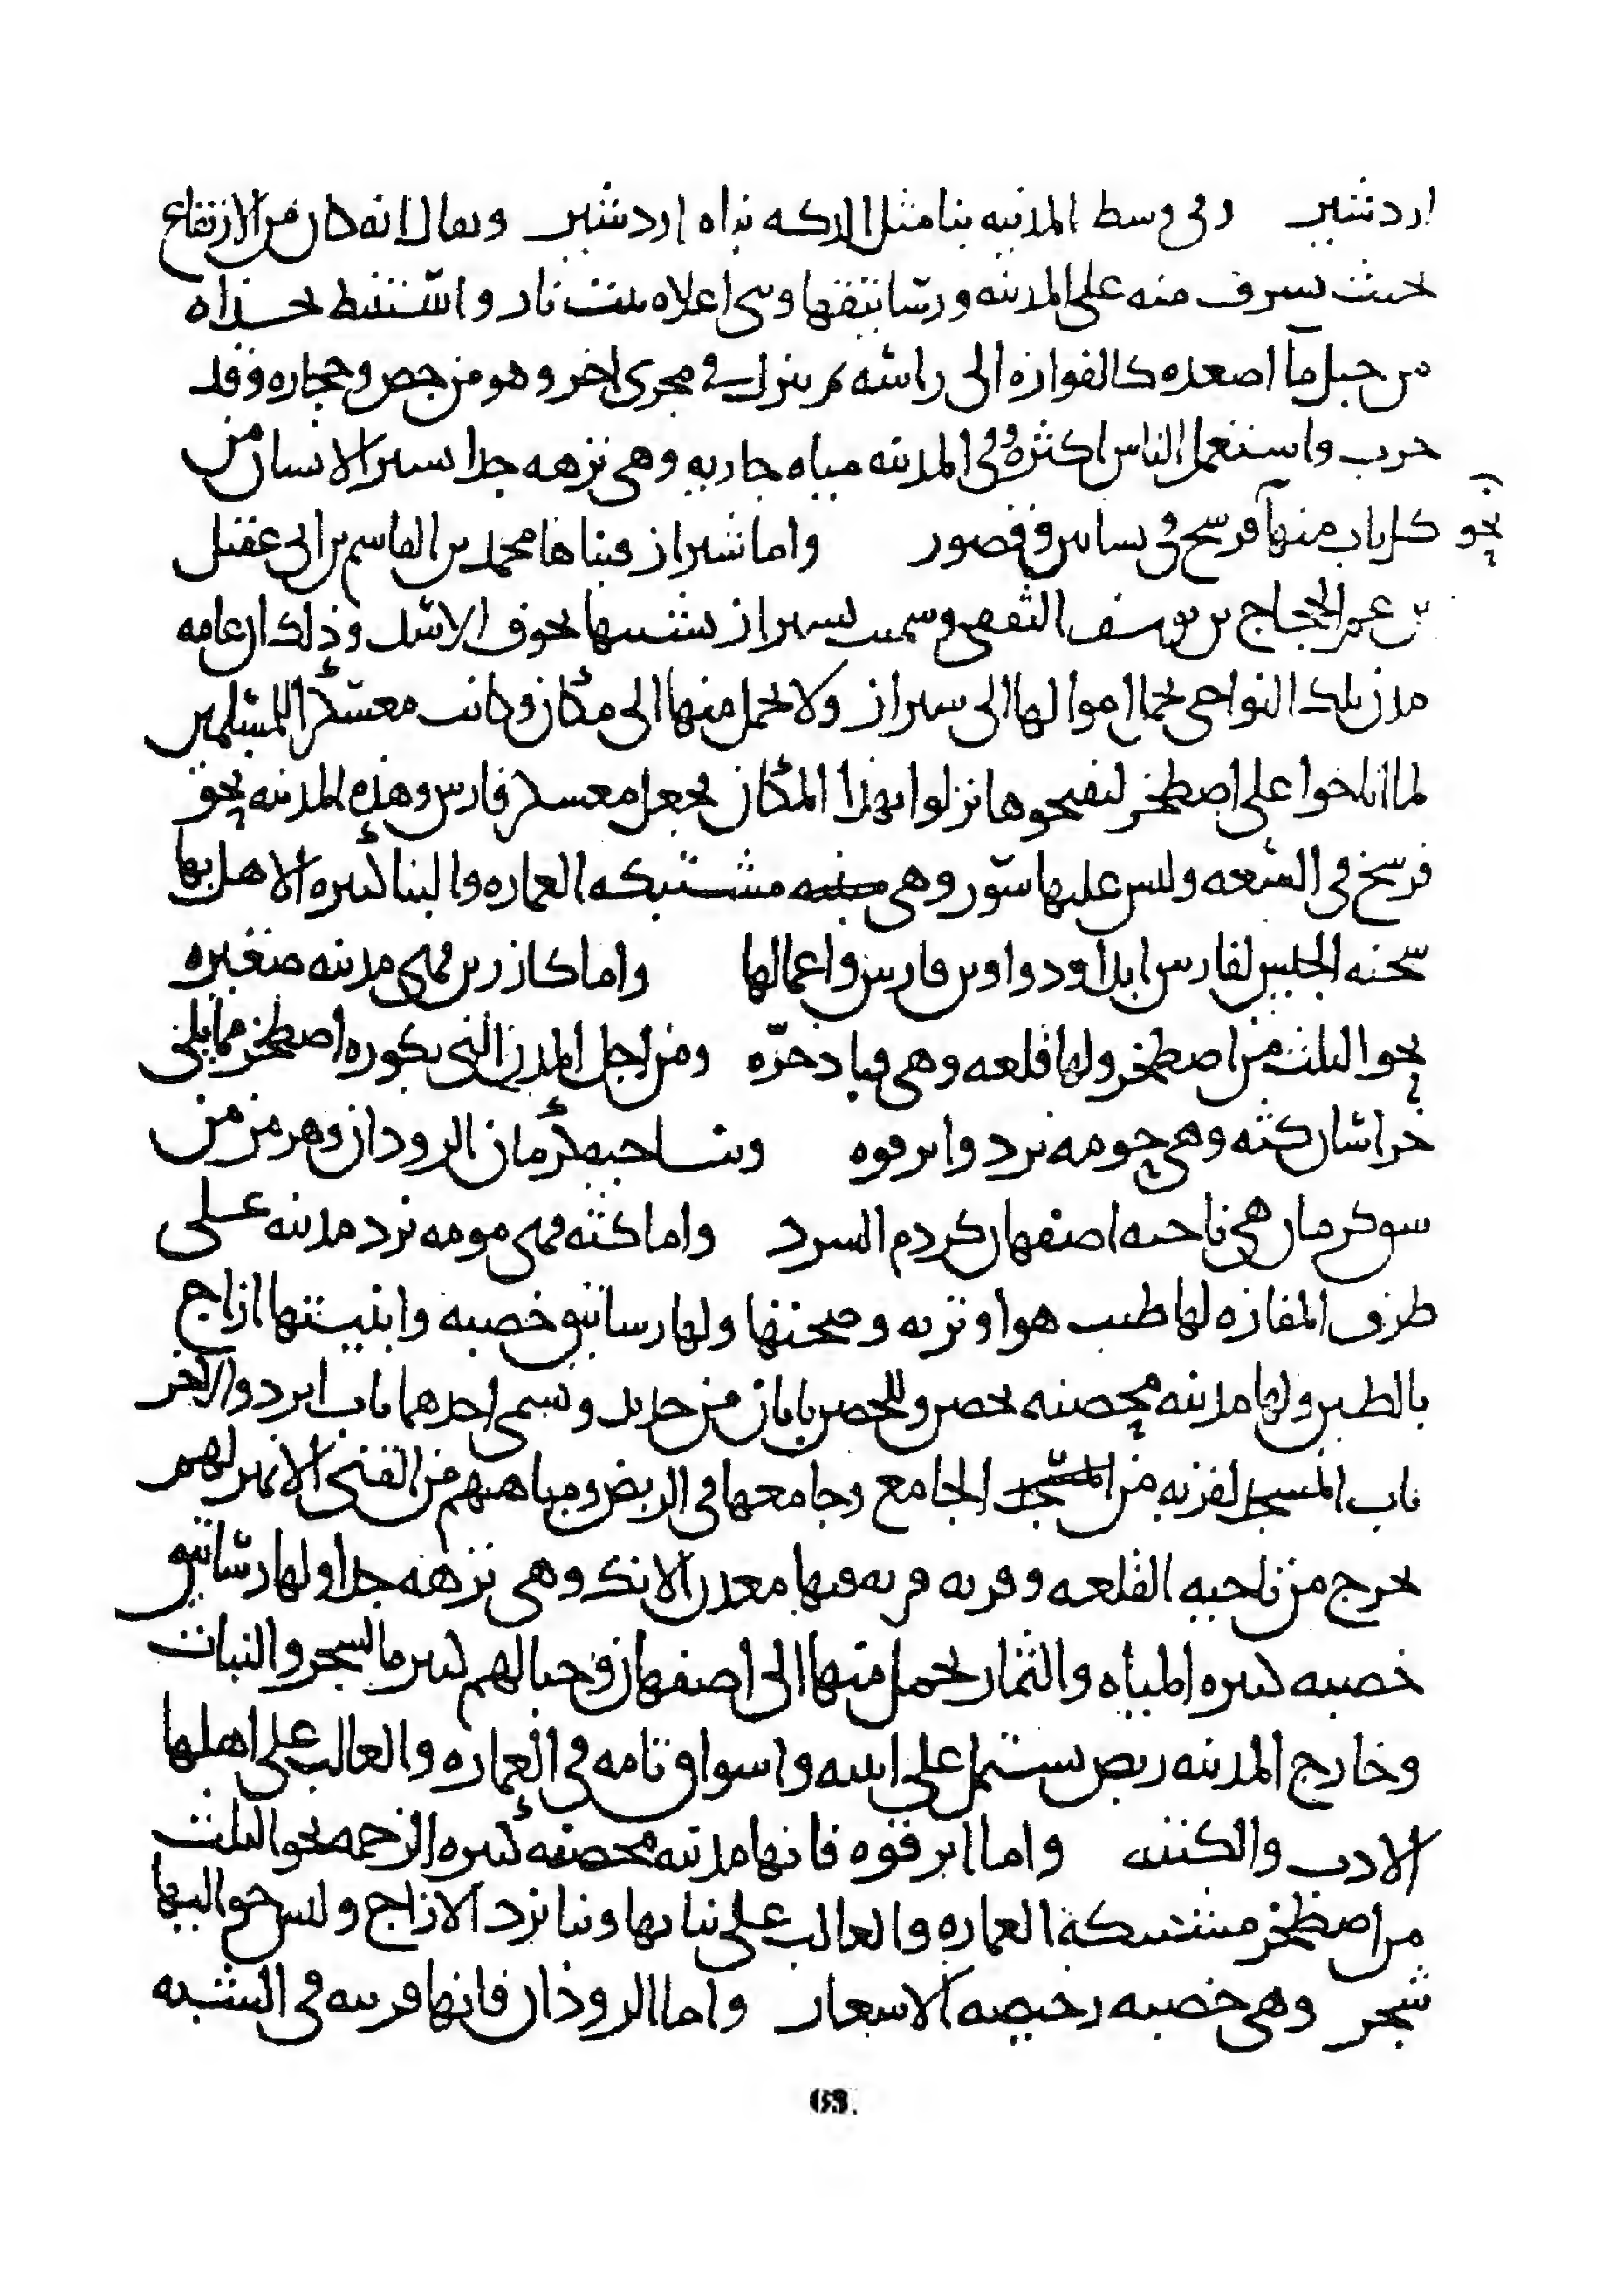 اردشير وفى وسط المدينه بنا مثل الدكه بناه اردشير ويقال انه كان من الارتفاع
بحيث يشرف منه على المدينه ورساتيقها وبنى اعلاه بيت نار واستنبط بحذاه
من جبل ماً اصعده كالفواره الى راسه ثم ينزل فى مجرى اخر وهو من جص وحجاره وقد
خرب واستعمل الناس اكثره وفى المدينه مياه جاريه وهى نزهه جدا يسير الانسان من
كل باب منها نحو فرسخ فى بساتين وقصور واما شيراز فبناها محمد بن القاسم بن ابى عقيل
بن عم الحجاج بن يوسف الثقفى وسميت بشيراز تشبيها بجوف الاسد وذلك ان عامه
مدن تلك النواحى يحمل اموالها الى شيراز ولا يحمل منها الى مكان وكانت معسكرا للمسلمين
لما اناخوا على اصطخر ليفتحوها نزلوا بهذا المكان فجعل معسكر فارس وهذه المدينه نحو
فرسخ فى السعه وليس عليها سور وهى مشتبكه العماره والبنا كثيره الاهل بها
شحنه الجيش لفارس ابدا ودواوين فارس واعمالها واما كازرين فهى مدينه صغيره
نحو الثلث من اصطخر ولها قلعه وهى قباد خره ومن اجل المدن التى بكوره اصطخر مما يلى
خراسان كثه وهى حومه يزد وابرقوه وبناحيه كرمان الروذان وهرمز من
سوكرمان هى ناحيه اصفهان كردم السرد واما كثه فهى حومه يزد مدينه على
طرف المفازه لها طيب هوا وتربه وصحتها ولها رساتيق خصبه وابنيتها ازاج
بالطين ولها مدينه محصنه بحصن وللحصن بابان من حديد ويسمى احدهما باب ايزد والاخر
باب المسجد لقربه من الجامع وجامعها فى الربض ومياههم من القنى الا نهر لهم
يخرج من ناحيه القلعه وقربه قريه فيها معدن الانك وهى نزهه جدا ولها رساتيق
خصبه كثيره المياه والثمار يحمل منها الى اصفهان وجبالهم كثير ما الشجر والنبات
وخارج المدينه ربض يشتمل على ابنيه واسواق تامه فى العماره والغالب على اهلها
الادب والكتبه واما ابرقوه فانها مدينه محصنه كثيره الزحمه نحو الثلث
من اصطخر مشتبكه العماره والغالب على بنايها وبنا يزد الازاج وليس حواليها
شجر وهى خصبه رخيصه الاسعار واما الروذان فانها قريبه فى الشبه
63.